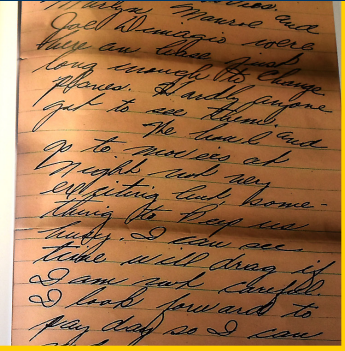 Marilyn Monroe and
Joe Dimagio were
here an hour just
long enough to change
planes. Hardly anyone
got to see them.
We bowl and
go to movies at
night not very
exciting but some-
thing to keep us
busy. I can see
time will drag if
I am not careful.
I look forward to
pay day so I can